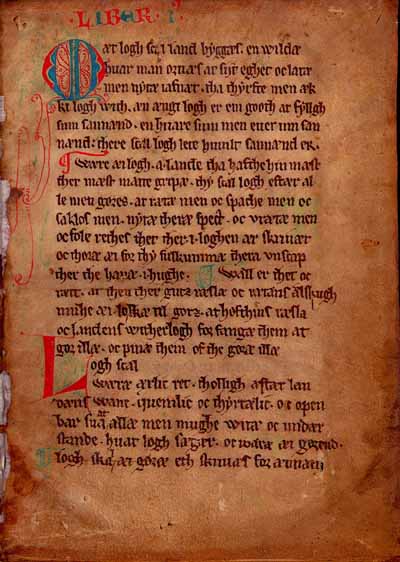 LIBER I
Mæth logh scal land byggæs. en wildæ
hwar man ornæs at sit eghet oc latæ
men nytæ iafnæt. tha thyrfte men æk
ki logh with. æn ængi logh er æm gooth at fylgh
sum sannænd. en huare sum men euer um san
nænd: there scal logh lete huilt sannænd er.
Waræ æi logh a lande tha hafthe hin mæst
ther mæst matte gripæ. thy scal logh æftær al
le men göræs. at rætæ men oc spache men oc
sakløs men. nytæ theræ spect. oc wrangæ men
oc fole rethes thet ther i loghen ær skriuæt
oc thoræ æi for thy fulkummæ theræ undscap
ther the hauæ i hughe. Wæl er thet oc
ræt. at then ther guz ræzlæ oc rætæns ælskugh
mughæ æi lokkæ til goz. at høfthings ræzlæ
oc landens witherlogh for fangæ them at
gør illæ. oc pinæ them of the gøræ illæ
Logh scal
wæræ ærlic ret. tholligh æftær lan
dæns wanæ. quemlic oc thyrftælic. oc open
bar sua at allæ men mughe witæ oc undær
standæ. huat logh sæghær. oc waræ æi gørænd.
logh scal æi gøræs eth skriuæs for ænnæn